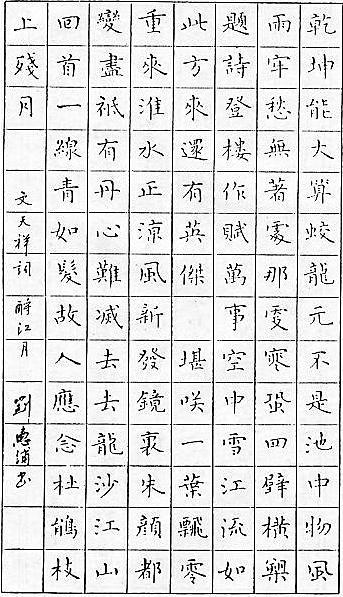 乾坤能大算蛟龍元不是池中物風
雨牢愁無著處那更寒蛩四壁橫槊
題詩登樓作賦萬事空中雪江流如
此方來還有英傑 堪咲一葉飄零
重來淮水正涼風新發鏡裏朱顏都
變盡祇有丹心難滅去去龍沙江山
回首一線青如髮故人應念杜鵑枝
上殘月
文天祥詞 酹江月 劉惠浦書